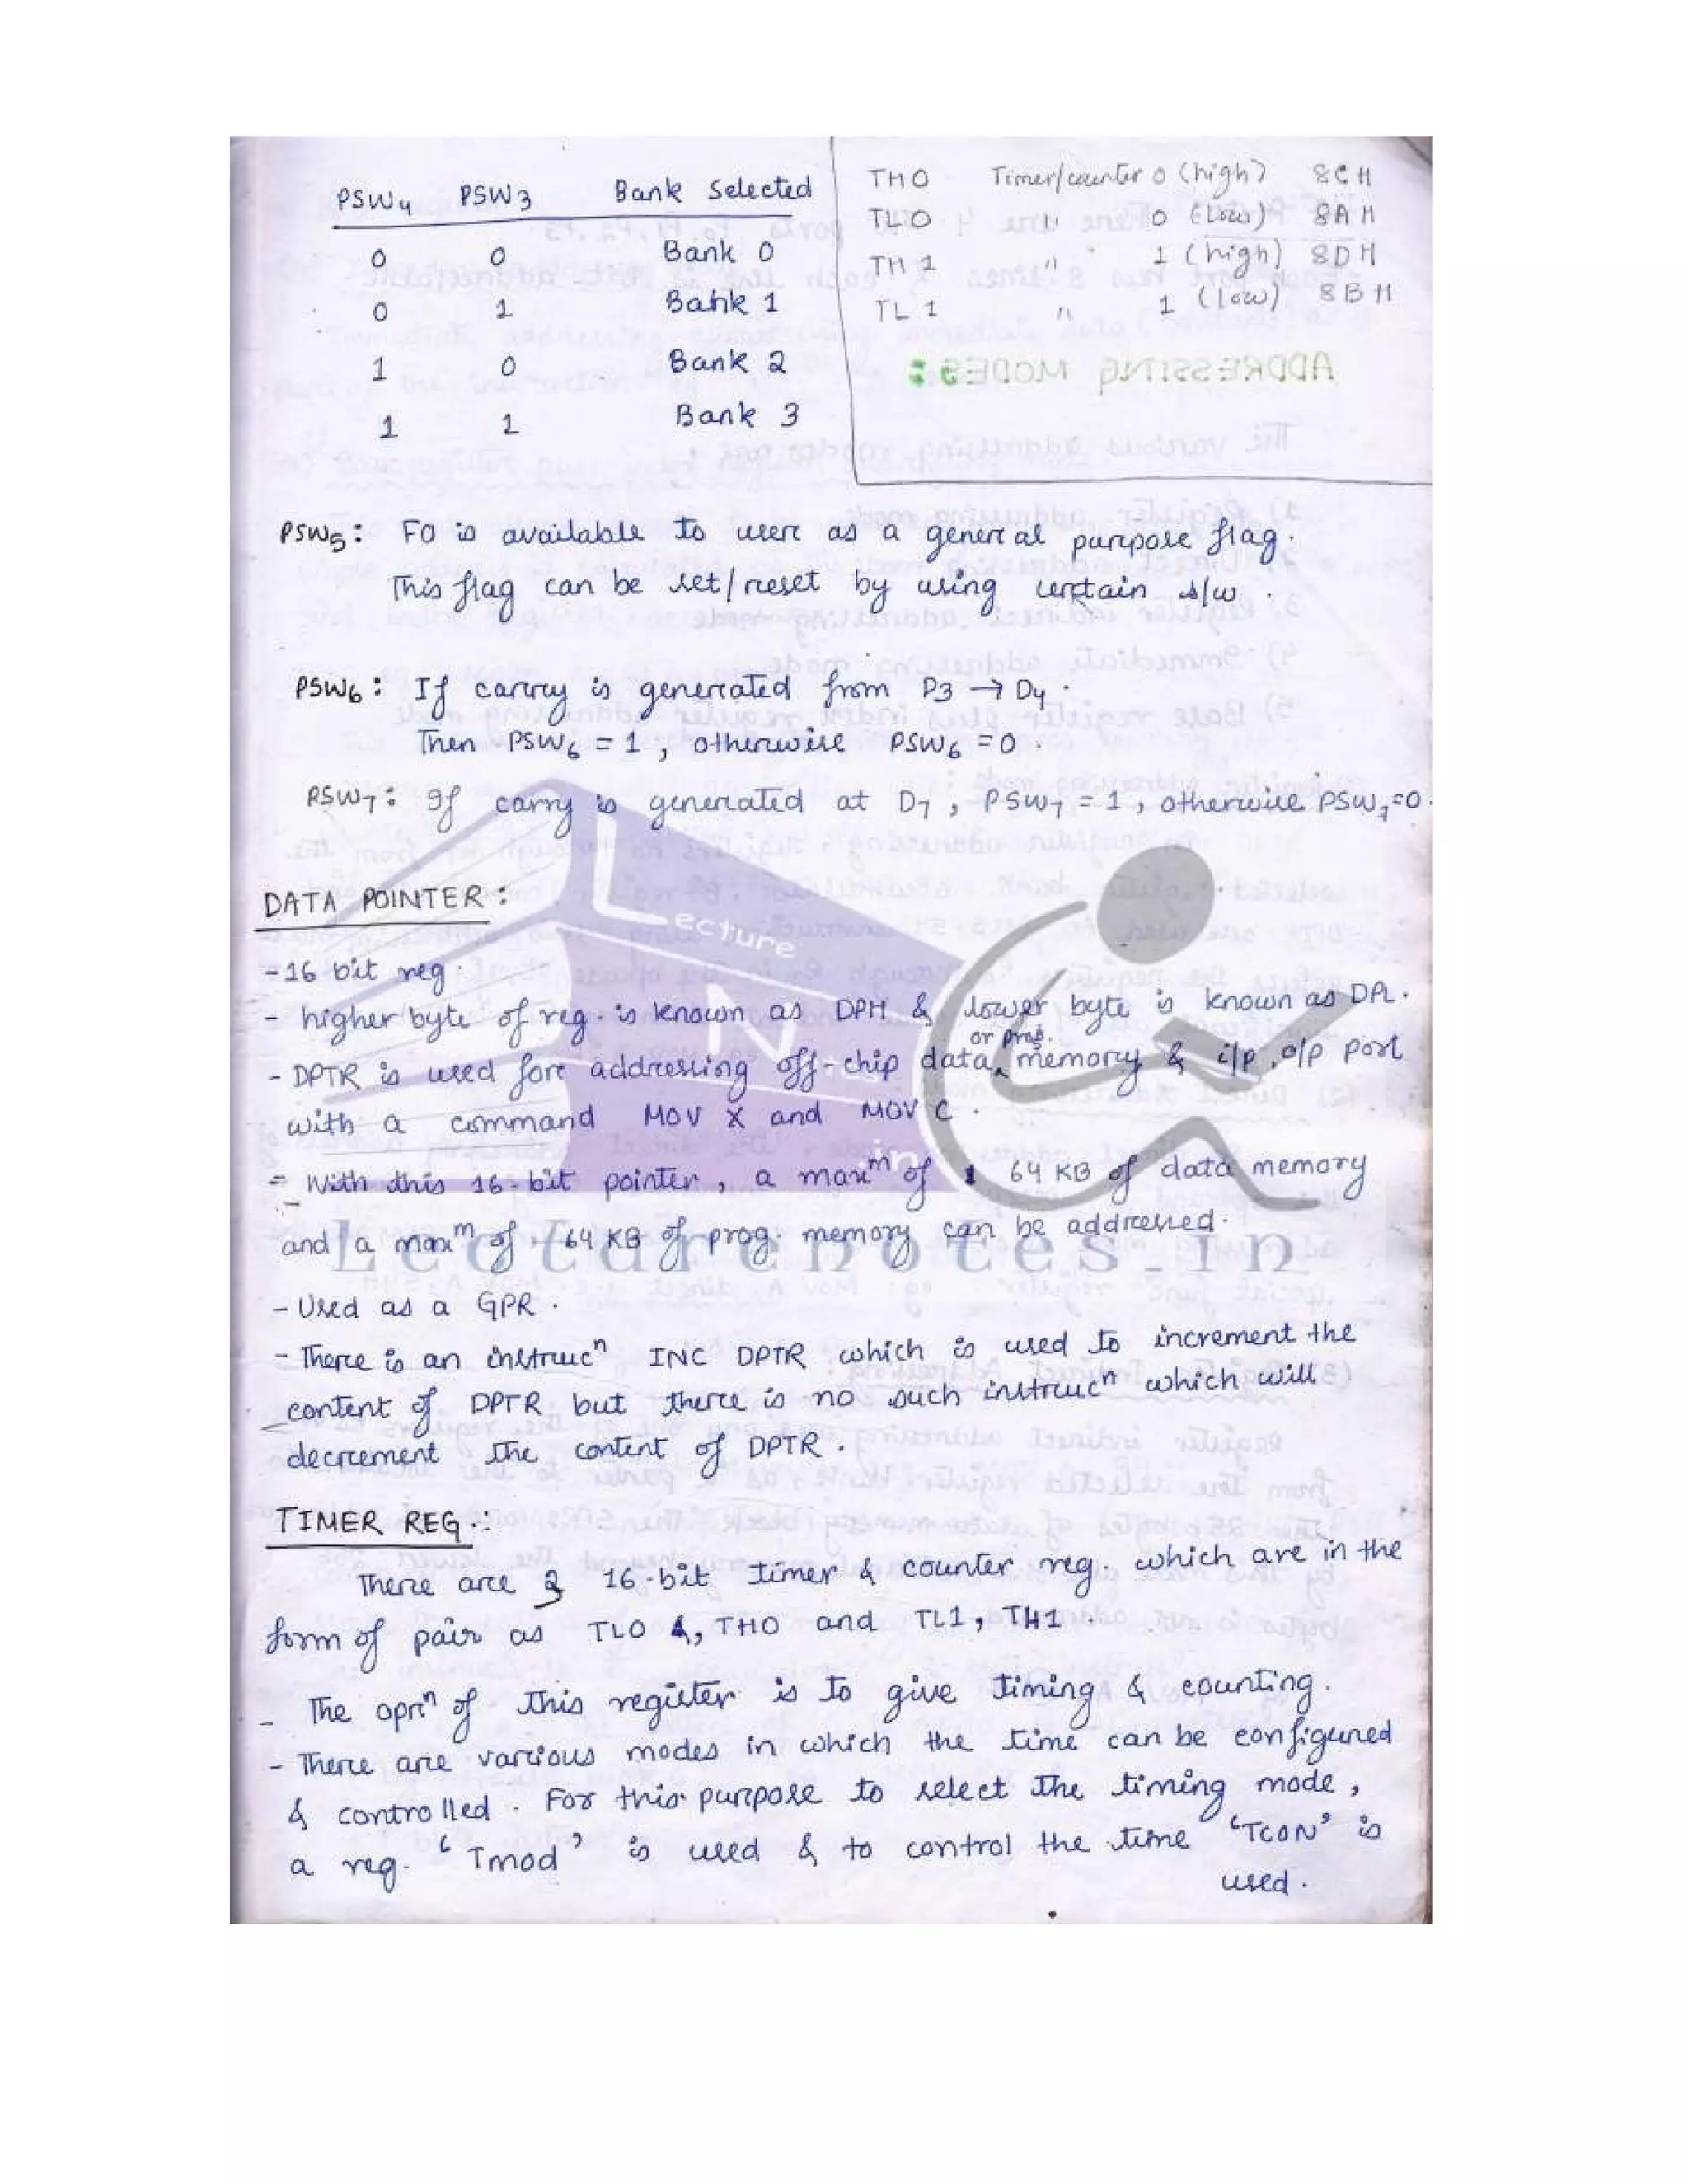 PSW4 PSW3 Bank Selected
0 0 Bank 0
0 1 Bank 1
1 0 Bank 2
1 1 Bank 3
TH0 Timer/counter 0 (high) 8CH
TL0 " 0 (Low) 8AH
TH1 " 1 (high) 8DH
TL1 " 1 (low) 8BH
PSW5 : F0 is available to user as a general purpose flag.
This flag can be set/reset by using certain s/w.
PSW6 : If carry is generated from D3 → D4.
Then PSW6 = 1, otherwise PSW6 = 0.
PSW7 : If carry is generated at D7, PSW7 = 1, otherwise PSW7=0.
DATA POINTER :
- 16 bit reg.
- higher byte of reg. is known as DPH & lower byte is known as DPL.
or prog.
- DPTR is used for addressing off-chip data ‸ memory & i/p, o/p port
with a command MOV X and MOV C.
- With this 16-bit pointer, a maxm of 64 KB of data memory
and a maxm of 64 KB of prog. memory can be addressed.
- Used as a GPR.
- There is an instrucn INC DPTR which is used to increment the
content of DPTR but there is no such instrucn which will
decrement the content of DPTR.
TIMER REG.:
There are 16-bit timer & counter reg. which are in the
form of pair as TL0, TH0 and TL1, TH1.
- The oprn of this register is to give timing & counting.
- There are various modes in which the time can be configured
& controlled. For this purpose to select the timing mode,
a reg. 'Tmod' is used & to control the time 'TCON' is
used.
Lecture Notes.in
Lecturenotes.in